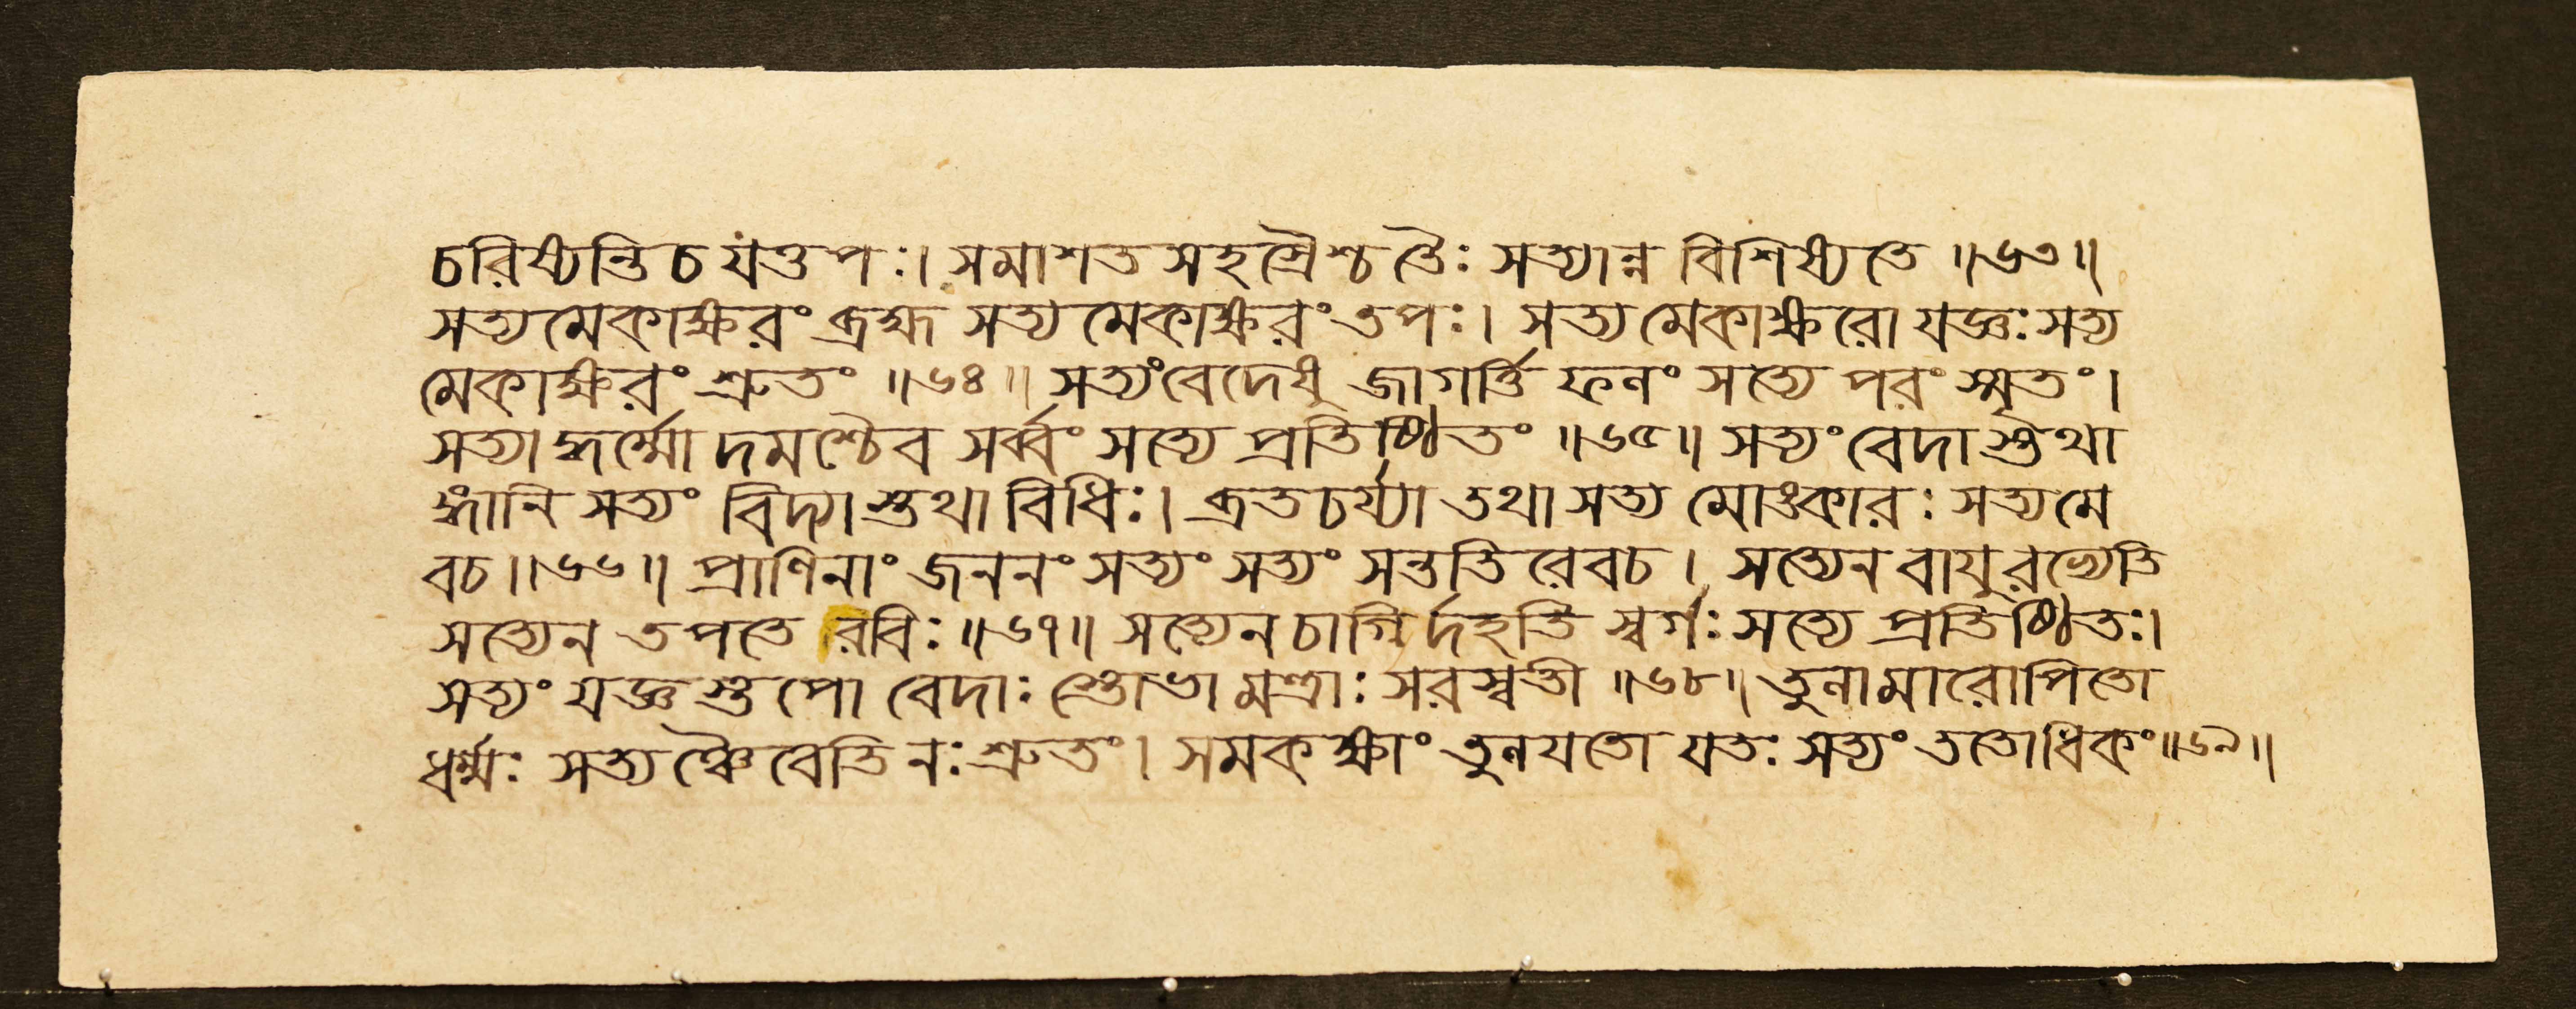 চরিষ্যন্তি চ যত্তপঃ। সমাশতসহস্রৈশ্চ তৈঃ সত্যান্ন বিশিষ্যতে ॥৬৩॥
সত্যমেকাক্ষরং ব্রহ্ম সত্যমেকাক্ষরং তপঃ। সত্যমেকাক্ষরো যজ্ঞঃ সত্য
মেকাক্ষরং শ্রুতং ॥৬৪॥ সত্যং বেদেষু জাগর্ত্তি ফলং সত্যে পরং স্মৃতং।
সত্যাদ্ধর্ম্মো দমশ্চৈব সর্ব্বং সত্যে প্রতিষ্ঠিতং ॥৬৫॥ সত্যং বেদাস্তথা
ঙ্গানি সত্যং বিদ্যাস্তথা বিধিঃ। ব্রতচর্য্যা তথা সত্য মোঙ্কারঃ সত্যমে
বচ ॥৬৬॥ প্রাণিনাং জননং সত্যং সত্যং সন্ততিরেবচ। সত্যেন বায়ুরভ্যেতি
সত্যেন তপতে রবিঃ ॥৬৭॥ সত্যেন চাগ্নির্দহতি স্বর্গঃ সত্যে প্রতিষ্ঠিতঃ।
সত্যং যজ্ঞস্তপো বেদাঃ স্তোভা মন্ত্রাঃ সরস্বতী ॥৬৮॥ তুলামারোপিতো
ধর্ম্মঃ সত্যঞ্চৈবেতি নঃ শ্রুতং। সমকক্ষাং তুলযতো যতঃ সত্যং ততোধিকং ॥৬৯॥